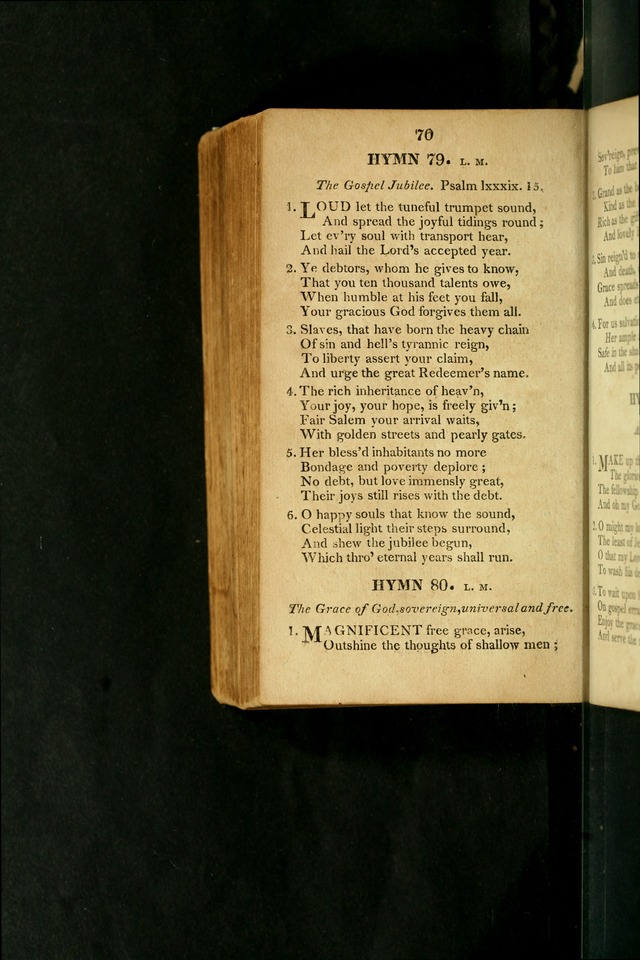 70
HYMN 79. L. M.
The Gospel Jubilee. Psalm lxxxix. 15.
1. LOUD let the tuneful trumpet sound,
And spread the joyful tidings round;
Let ev'ry soul with transport hear,
And hail the Lord's accepted year.
2. Ye debtors, whom he gives to know,
That you ten thousand talents owe,
When humble at his feet you fall,
Your gracious God forgives them all.
3. Slaves, that have born the heavy chain
Of sin and hell's tyrannic reign,
To liberty assert your claim,
And urge the great Redeemer's name.
4. The rich inheritance of heav'n,
Your joy, your hope, is freely giv'n;
Fair Salem your arrival waits,
With golden streets and pearly gates.
5. Her bless'd inhabitants no more
Bondage and poverty deplore;
No debt, but love immensly great,
Their joys still rises with the debt.
6. O happy souls that know the sound,
Celestial light their steps surround,
And shew the jubilee begun,
Which thro' eternal years shall run.
HYMN 80. L. M.
The Grace of God, sovereign, universal and free.
1. MAGNIFICENT free grace, arise,
Outshine the thoughts of shallow men;
To him that
Grand as the
Kind as the
Rich as the
And lovely
Sin reign'd to
And death,
Grace spreads
And does
4. For us
Her ample
Safe in the
And all its
HY
1. MAKE up
The
The fellowship
And oh my
2. O might my
The least of
O that my
To wash his
3. To wait upon
On gospel
Enjoy the
And serve the